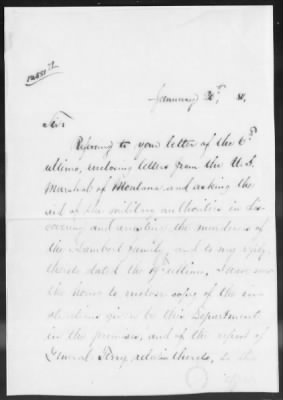 January
Sir:
Referring to your letter of the 6th
ultimo, enclosing letters from the U.S.
Marshal of Montana and asking the
aid of the military authorities in dis-
covering and arresting the murderers of
the family, and to my reply
thereto dated the ultimo, I have now
the honor to enclose copies of the in-
structions given by this Department
in the premises, and of the report of
General Terry, relative thereto, to the